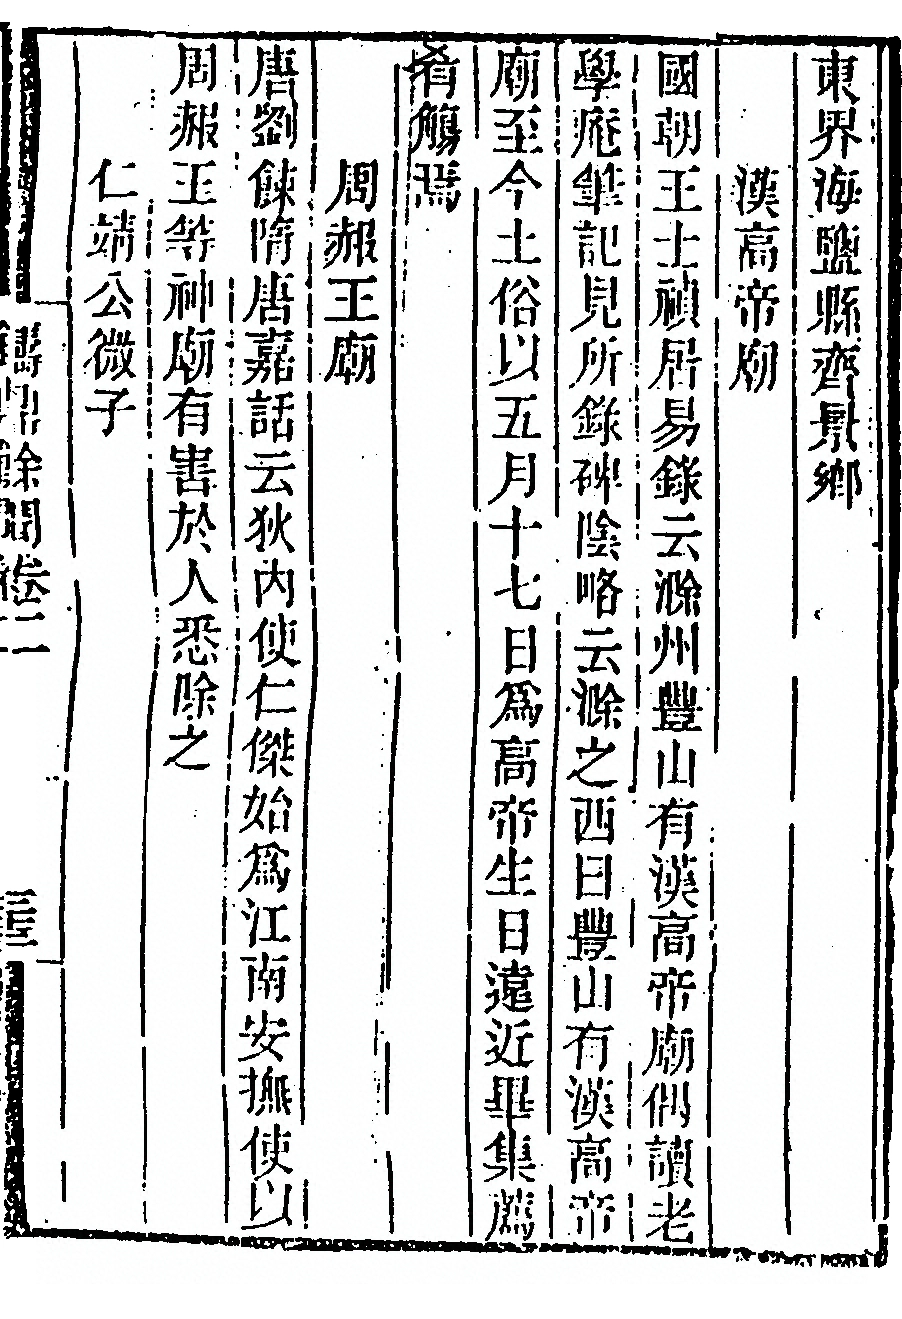 東界海鹽縣齊景鄉
漢高帝廟
國朝王士禎居易錄云滁州豐山有漢高帝廟偶讀老
學庵筆記見所錄碑陰略云滁之西曰豐山有漢高帝
廟至今土俗以五月十七日爲高帝生日遠近畢集薦
肴觴焉
周赧王廟
唐劉餗隋唐嘉話云狄內使仁傑始爲江南安撫使以
周赧王等神廟有害於人悉除之
仁靖公微子
餘聞卷二